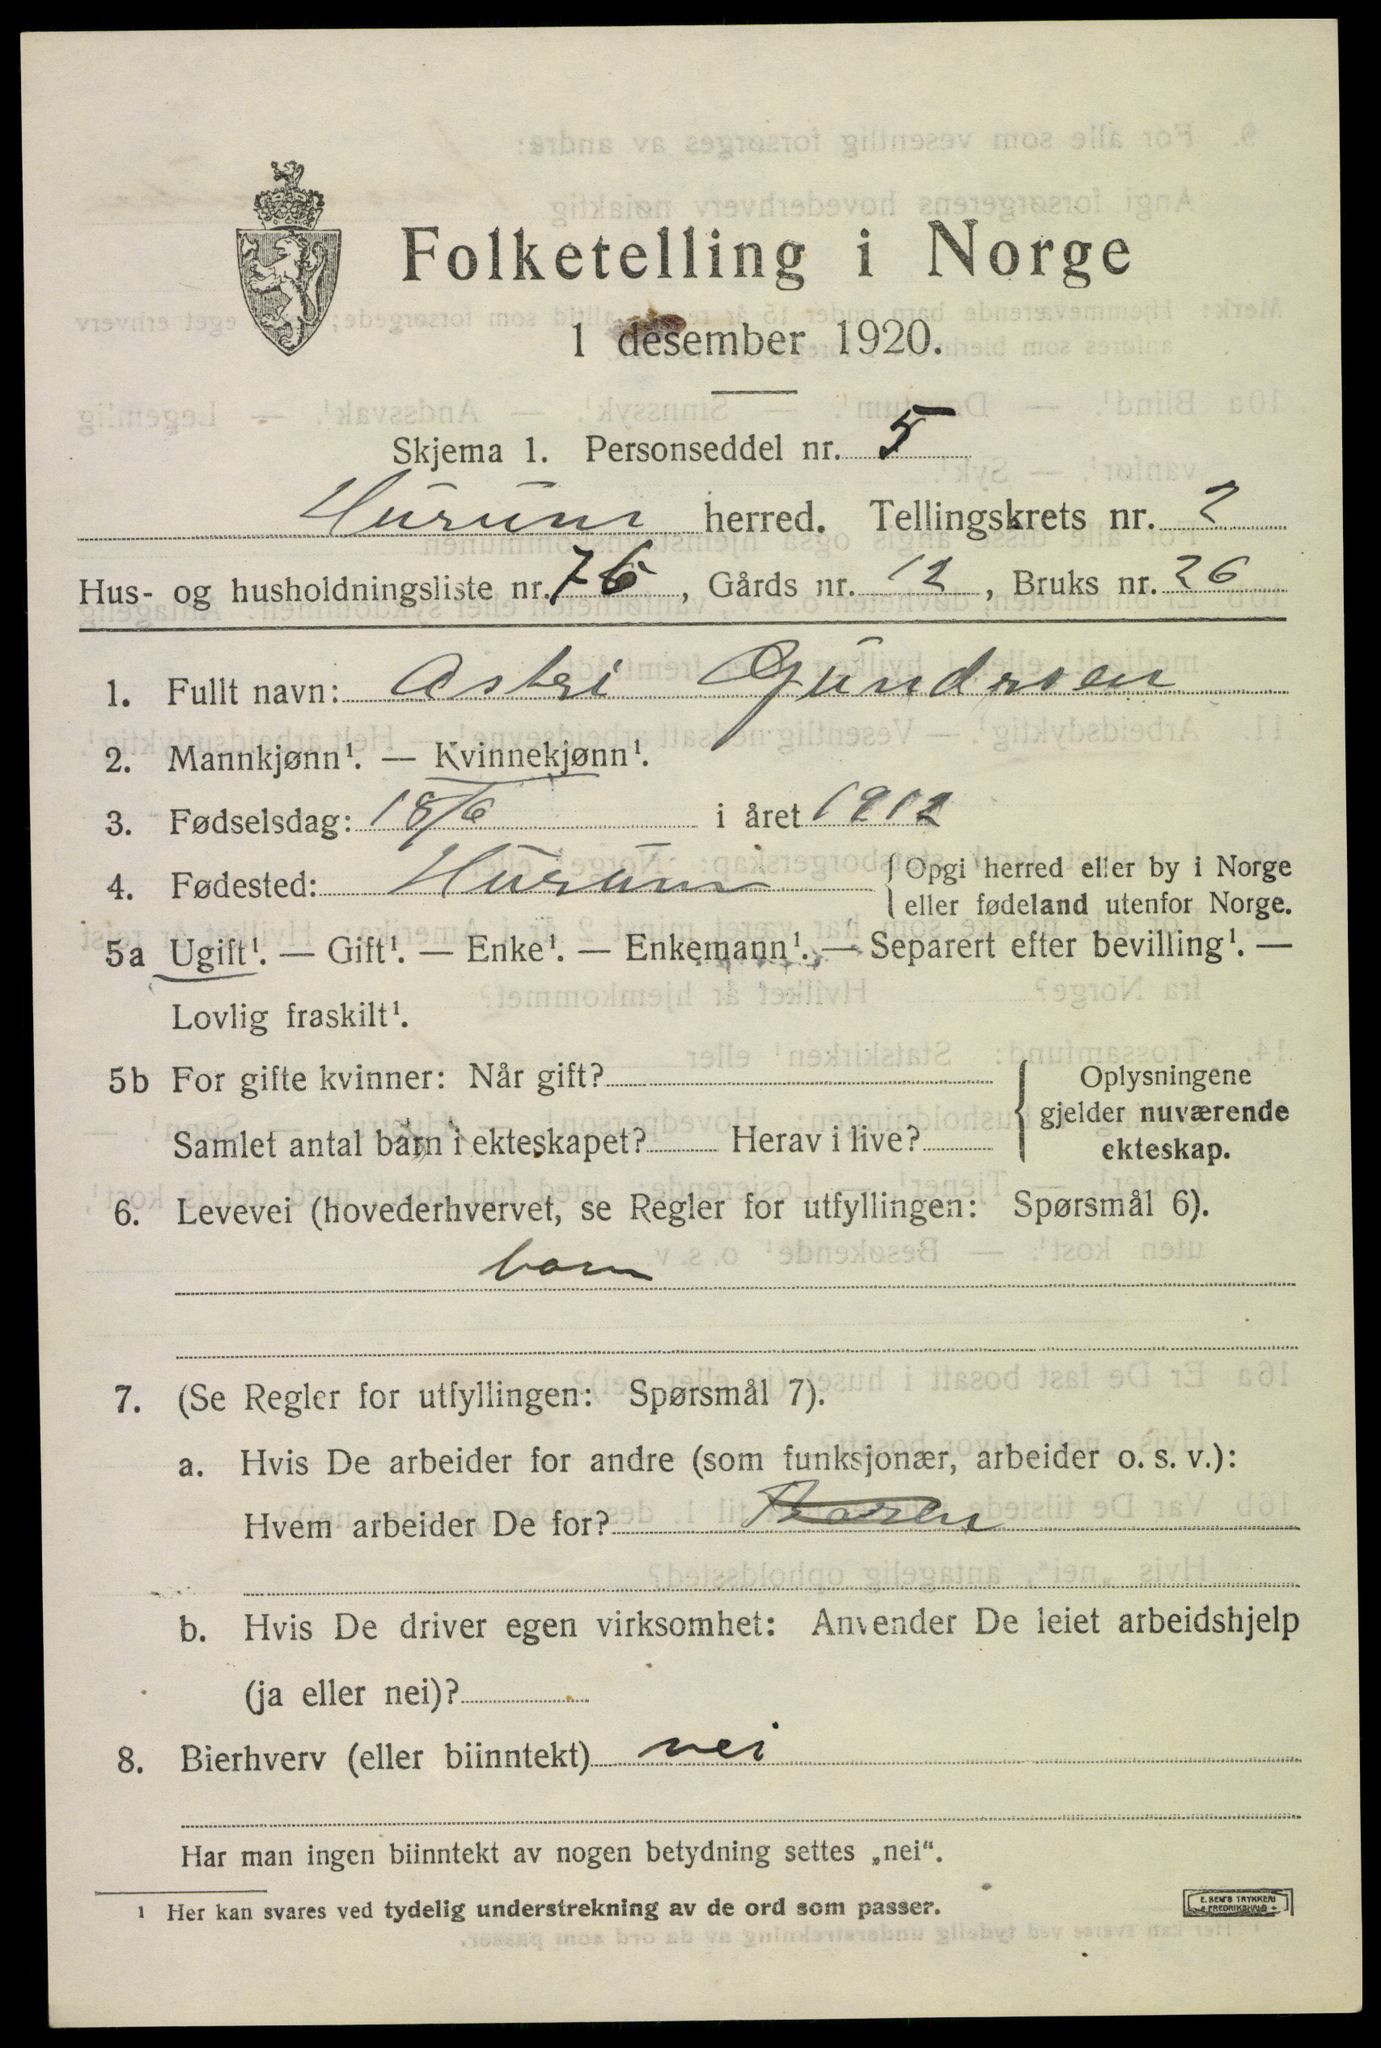 Folketelling i Norge
1 desember 1920.
Skjema 1. Personseddel nr. 5
Hurum herred. Tellingskrets nr. 2
Hus- og husholdningsliste nr. 76, Gårds nr. 12, Bruks nr. 26
1. Fullt navn: Astri Gundersen
2. Mannkjønn¹. — Kvinnekjønn¹.
3. Fødselsdag: 18/6 i året 1912
4. Fødested: Hurum { Opgi herred eller by i Norge
eller fødeland utenfor Norge.
5a Ugift¹. — Gift¹. — Enke¹. — Enkemann¹. — Separert efter bevilling¹. —
Lovlig fraskilt¹.
5b For gifte kvinner: Når gift? { Oplysningene
gjelder nuværende
Samlet antal barn i ekteskapet? Herav i live?
ekteskap.
6. Levevei (hovederhvervet, se Regler for utfyllingen: Spørsmål 6).
barn
7. (Se Regler for utfyllingen: Spørsmål 7).
a. Hvis De arbeider for andre (som funksjonær, arbeider o. s. v.):
Hvem arbeider De for?
b. Hvis De driver egen virksomhet: Anvender De leiet arbeidshjelp
(ja eller nei)?
8. Bierhverv (eller biinntekt) nei
Har man ingen biinntekt av nogen betydning settes „nei“.
¹ Her kan svares ved tydelig understrekning av de ord som passer.
E. SEM'S TRYKKERI
FREDRIKSHALD